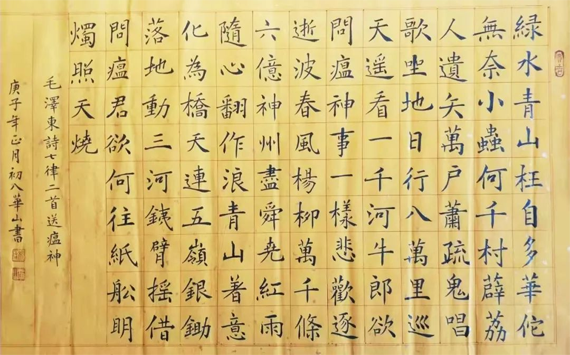 綠水青山枉自多華佗
無奈小蟲何千村薜荔
人遺矢萬戶蕭疏鬼唱
歌坐地日行八萬里巡
天遥看一千河牛郎欲
問瘟神事一樣悲歡逐
逝波春風楊柳萬千條
六億神州盡舜堯紅雨
隨心翻作浪青山着意
化為橋天連五嶺銀鋤
落地動三河銕臂摇借
問瘟君欲何往紙舩明
燭照天燒
毛澤東詩七律二首送瘟神
庚子年正月初八華山書